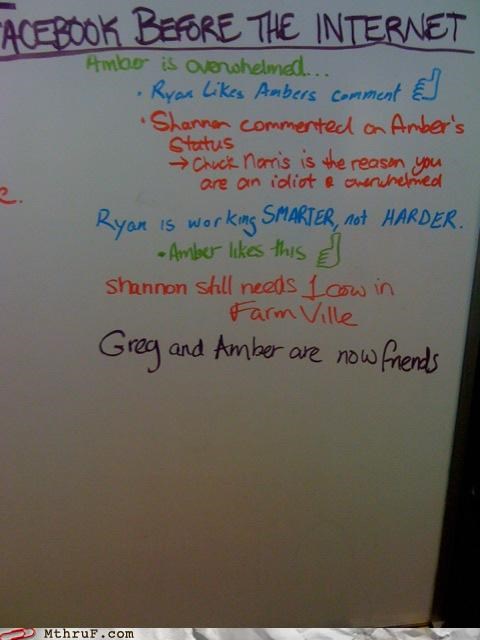 FACEBOOK BEFORE THE INTERNET
Amber is overwhelmed...
• Ryan Likes Ambers comment
• Shannon commented on Amber's
Status
→ Chuck Norris is the reason you
are an idiot & overwhelmed
e.
Ryan is working SMARTER, not HARDER.
• Amber likes this
Shannon still needs 1 cow in
FarmVille
Greg and Amber are now friends
MthruF.com